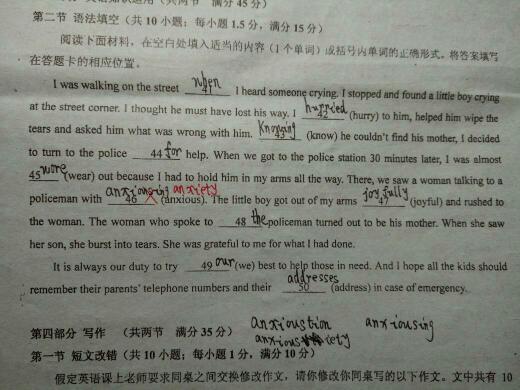 第二节 语法填空（共 10 小题；每小题 1.5 分，满分 15 分）
阅读下面材料，在空白处填入适当的内容（1 个单词）或括号内单词的正确形式。将答案填写
在答题卡的相应位置。
I was walking on the street 41 when I heard someone crying. I stopped and found a little boy crying
at the street corner. I thought he must have lost his way. I 42 hurried (hurry) to him, helped him wipe the
tears and asked him what was wrong with him. 43 Knowing (know) he couldn't find his mother, I decided
to turn to the police 44 for help. When we got to the police station 30 minutes later, I was almost
45 wore (wear) out because I had to hold him in my arms all the way. There, we saw a woman talking to a
policeman with 46 anxiousing anxiety (anxious). The little boy got out of my arms 47 joyfully (joyful) and rushed to
the woman. The woman who spoke to 48 the policeman turned out to be his mother. When she saw
her son, she burst into tears. She was grateful to me for what I had done.
It is always our duty to try 49 our (we) best to help those in need. And I hope all the kids should
remember their parents' telephone numbers and their 50 addresses (address) in case of emergency.
第四部分 写作 （共两节 满分 35 分） anxioustion anxiousing
第一节 短文改错（共 10 小题；每小题 1 分，满分 10 分）
假定英语课上老师要求同桌之间交换修改作文，请你修改你同桌写的以下作文。文中共有 10